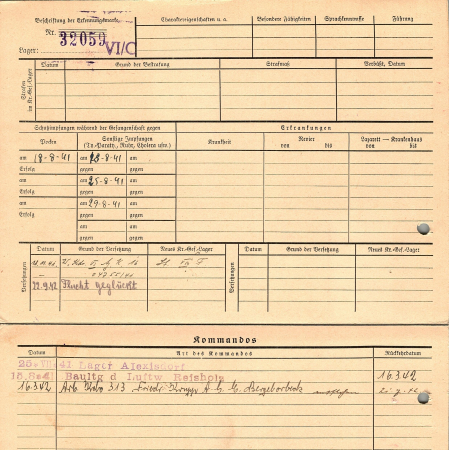 Beschriftung der Erkennungsmarke
Charaktereigenschaften u. a.
Besondere Fähigkeiten
Sprachkenntnisse
Führung
Nr. 32059
VI/C
Lager:
Strafen im Kr.-Gef.-Lager
Datum
Grund der Bestrafung
Strafmaß
Verbüßt, Datum
Schutzimpfungen während der Gefangenschaft gegen
Erkrankungen
Pocken
Sonstige Impfungen
(Ty.-Paraty., Ruhr, Cholera usw.)
Krankheit
Revier
von bis
Lazarett — Krankenhaus
von bis
am 18-8-41 am 18-8-41 am
Erfolg gegen gegen
am am 25-8-41 am
Erfolg gegen gegen
am am 29-8-41 am
Erfolg gegen gegen
am am
gegen gegen
am am
gegen gegen
Versetzungen
Datum
Grund der Versetzung
Neues Kr.-Gef.-Lager
Versetzungen
Datum
Grund der Versetzung
Neues Kr.-Gef.-Lager
22.9.42 Flucht geglückt
Kommandos
Datum
Art des Kommandos
Rückkehrdatum
Lager Alexisdorf
Baultg d Luftw Reisholz
16.3.42
16.3.42 Arb. Kdo 513 Friedr. Krupp A.G. Bergeborbeck